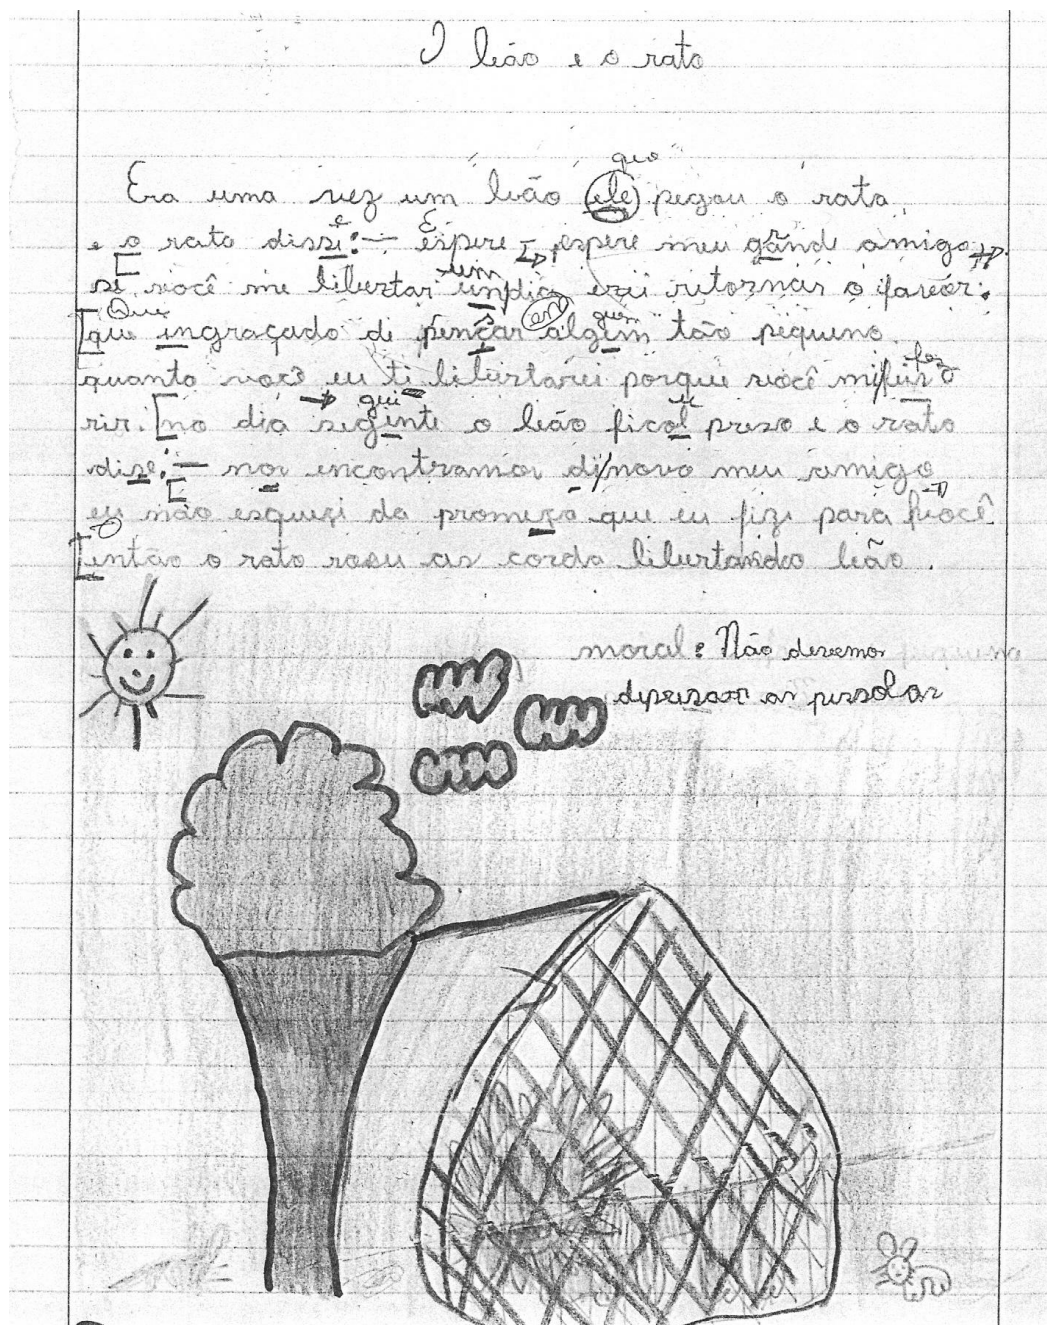 O leão e o rato
que
Era uma vez um leão ele pegou o rato
e o rato dissi: — Espere, espere meu gandi amigo
si você me libertar umdia erei retornar o favor.
que ingraçado di pençar algem tão pequeno
quanto você eu ti libertarei porque você mi feis
rir. no dia seginti o leão ficol preso e o rato
dise: — nos encontramos di novo meu amigo
eu não esqueçi da promeza que eu fizi para você
então o rato roeu as corda libertando leão.
moral: Não devemos
desprezar as pessolas